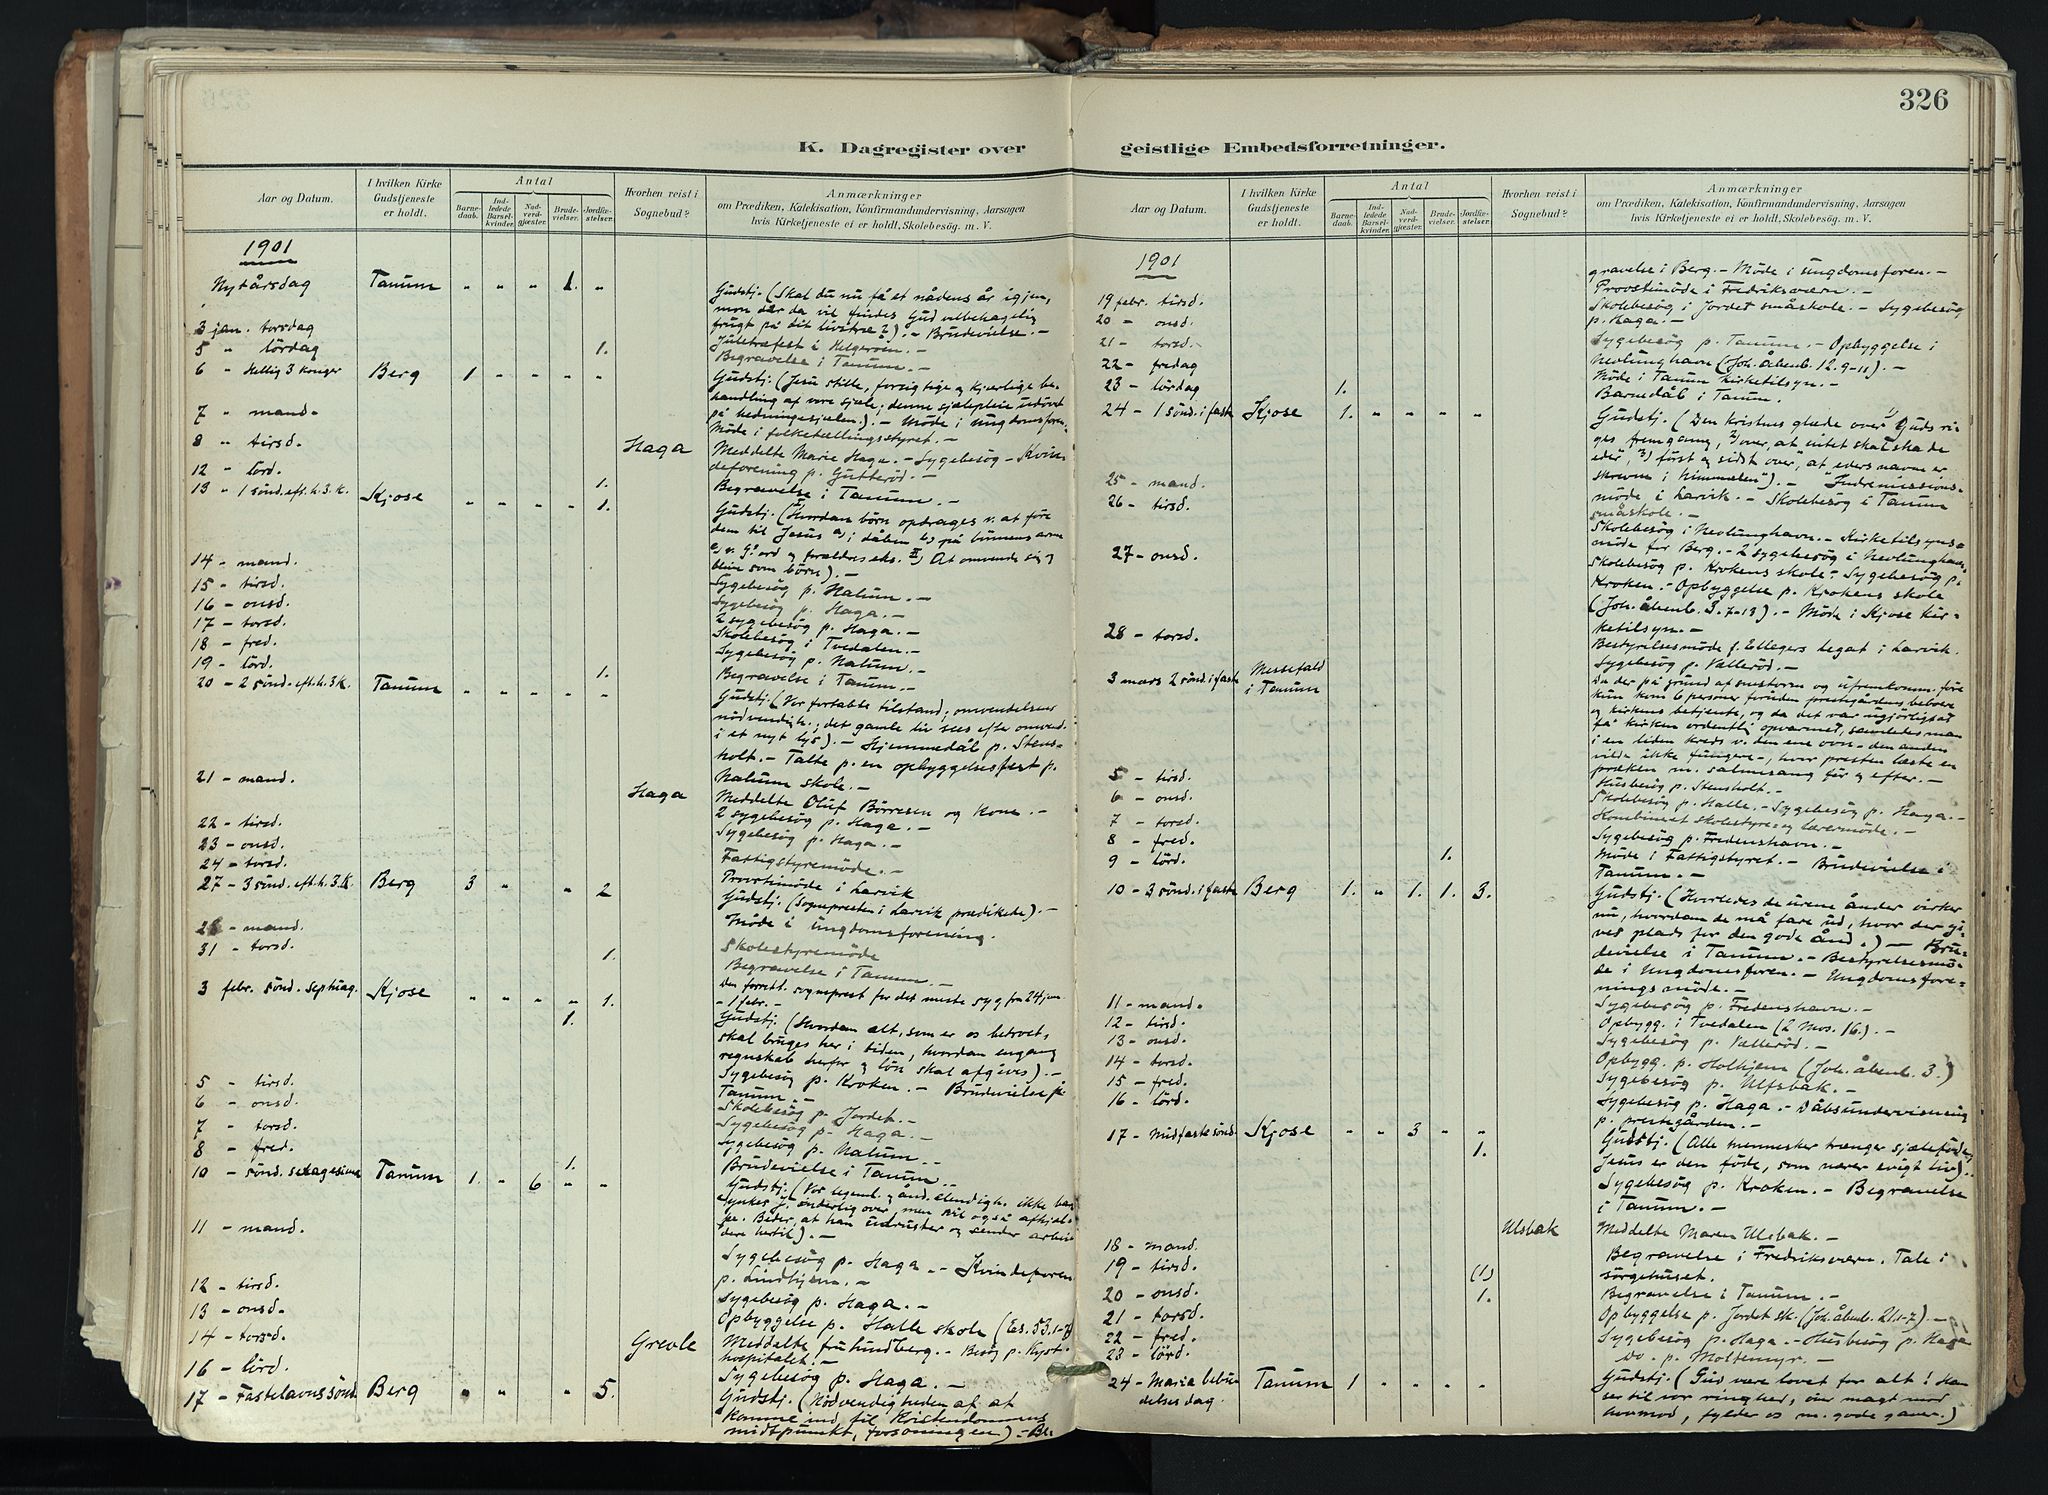 326
K. Dagregister over geistlige Embedsforretninger.
Aar og Datum.
I hvilken Kirke Gudstjeneste er holdt.
Antal
Barnedaab.
Indledede Barselkvinder.
Nadverdgjester.
Brudevielser.
Jordfæstelser.
Hvorhen reist i Sognebud?
Anmærkninger
om Prædiken, Katekisation, Konfirmandundervisning, Aarsagen
hvis Kirketjeneste ei er holdt, Skolebesøg m. V.
1901
Nytårsdag Tanum " " " 1. " Gudstj. (Skal du nu få et nådens år igjen,
mon der da vil findes Gud velbehagelig
frugt på dit livstræ?). – Brudevielse. –
3 jan. torsdag Juletræfest i Helgeroen. –
5 " lördag 1. Begravelse i Tanum. –
6 " Hellig 3 konger Berg 1 " " " " Gudstj. (Jesu stille, forsigtige og kjærlige be-
handling af vore sjæle; denne sjælepleie udövet
på hedningesjælen.). – Möde i ungdomsforen.
7 " mand. Möde i folketællingsstyret. –
8 " tirsd. Haga Meddelte Marie Haga. – Sygebesög – Kvin-
deforening p. Gutteröd. –
12 " lörd. 1. Begravelse i Tanum. –
13 " 1 sönd. eft. h. 3. K. Kjose " " " " 1. Gudstj. (Hvordan börn opdrages v. at före
dem til Jesus i dåben
ord og forældres eks. At omvende sig og
blive som börn). –
14 – mand. Sygebesög p. Nalum. –
15 – tirsd. Sygebesög p. Haga. –
16 – onsd. 2 sygebesög p. Haga. –
17 – torsd. Skolebesög i Tvedalen. –
18 – fred. Sygebesög p. Nalum. –
19 – lörd. 1. Begravelse i Tanum. –
20 – 2 sönd. eft. h. 3 K. Tanum " " " " " Gudstj. (Vor fortabte tilstand; omvendelsens
nödvendigh.; det gamle liv sees efter omvend.
i et nyt lys). – Hjemmedåb p. Stens-
holt. – Talte p. en opbyggelsesfest p.
Nalum skole. –
21 – mand. Haga Meddelte Oluf Börresen og Kone. –
2 sygebesög p. Haga. –
22 – tirsd. Sygebesög p. Haga. –
23 – onsd. Fattigstyremöde. –
24 – torsd. Provstimöde i Larvik
27 – 3 sönd. eft. h. 3. K. Berg 3 " " 2 Gudstj. (Sognepresten i Larvik prædikede). –
Möde i Ungdomsforening.
28 – mand. Skolestyremöde
31 – torsd. 1. Begravelse i Tanum. –
sogneprest for det meste syg fra 24 jan.
– 1 febr. –
3 febr. sönd. septuag. Kjose " " " " 1. Gudstj. (Hvordan alt, som er os betroet,
1. skal bruges her i tiden, hvordan engang
regnskab herfor og lön skal afgives). –
Sygebesög p. Kroken. – Brudevielse på
Tanum. –
5 – tirsd. Skolebesög p. Jordet. –
6 – onsd. Sygebesög p. Haga. –
7 – torsd. Sygebesög p. Nalum. –
8 – fred. 1. Brudevielse i Tanum. –
10 – sönd. sexagesima Tanum 1. " 6 " " Gudstj. (Vor legeml. og ånd. elendigh. ikke bare
ynkes J. inderlig over, men vil også afhjæl-
pe. Beder, at han udruster og sender arbei-
dere hertil). –
11 – mand. Sygebesög p. Haga. – Kvindeforen.
p. Lindhjem. –
12 – tirsd. Sygebesög p. Haga. –
13 – onsd. Opbyggelse p. Halle skole (Es. 53. 1–7)
14 – torsd. Grevle Meddelte fru Lundberg. – Besög p. Kyst-
hospitalet. –
16 – lörd. Sygebesög p. Haga. –
17 – Fastelavnssönd. Berg " " " 5. Gudstj. (Nödvendigheden af at
komme ind til Kristendommens
midtpunkt, forsoningen). – Be-
Aar og Datum.
I hvilken Kirke Gudstjeneste er holdt.
Antal
Barnedaab.
Indledede Barselkvinder.
Nadverdgjester.
Brudevielser.
Jordfæstelser.
Hvorhen reist i Sognebud?
Anmærkninger
om Prædiken, Katekisation, Konfirmandundervisning, Aarsagen
hvis Kirketjeneste ei er holdt, Skolebesøg m. V.
1901
gravelse i Berg. – Möde i ungdomsforen. –
19 febr. tirsd. Provstimöde i Fredriksværn. –
20 – onsd. Skolebesög i Jordet småskole. – Sygebesög
p. Haga. –
21 – torsd. Sygebesög p. Tanum. – Opbyggelse i
22 – fredag Nevlunghavn (Joh. åbenb. 12. 9–11). –
Möde i Tanum kirketilsyn. –
23 – lördag 1. Barnedåb i Tanum.
24 – 1 sönd. i faste Kjose 1. " " " " Gudstj. (Den kristnes glæde over 1) Guds ri-
ges fremgang, 2) over, at intet skal skade
eder", 3) först og sidst over, "at eders navne er
skrevne i himmelen"). – Indremissions-
25 – mand. möde i Larvik. – Skolebesög i Tanum
26 – tirsd. småskole. –
Skolebesög i Nevlunghavn. – Kirketilsyns-
27 – onsd. möde for Berg. – 2 sygebesög i Nevlunghavn.
Skolebesög p. Krokens skole. – Sygebesög p.
Kroken. – Opbyggelse p. Krokens skole
(Joh. åbenb. 3. 7–13). – Möde i Kjose kir-
ketilsyn. –
28 – torsd. Bestyrelsesmöde f. Ellegers legat i Larvik.
Sygebesög p. Valleröd. –
3 mars 2 sönd. i faste Messefald i Tanum Da der på grund af snestorm og ufremkomm. före
kun kom 6 personer foruden prestgårdens beboere
og kirkens betjente, og da det var ugjörligt at
få kirken ordentlig opvarmet, samledes man
i en liden kreds v. den ene ovn – den anden
vilde ikke fungere –, hvor presten læste en
præken m. salmesang för og efter. –
5 – tirsd. Husbesög p. Stensholt. –
6 – onsd. Skolebesög p. Halle. – Sygebesög p. Haga. –
7 – torsd. Kombineret skolestyre- og lærermöde. –
8 – fred. Sygebesög p. Fredenshavn. –
9 – lörd. 1. Möde i Fattigstyret. – Brudevielse.
Tanum. –
10 – 3 sönd. i faste Berg 1. " 1. 1. 3. Gudstj. (Hvorledes de urene ånder virker
nu, hvordan de må fare ud, hvor der gi-
ves plads for den gode ånd.) – Bru-
devielse i Tanum. – Bestyrelsesmö-
de i Ungdomsforen. – Ungdomsfore-
ningsmöde. –
11 – mand. Sygebesög p. Fredenshavn. –
12 – tirsd. Opbygg. i Tvedalen (2 Mos. 16.). –
13 – onsd. Sygebesög p. Valleröd. –
14 – torsd. Opbygg. p. Holhjem (Joh. åbenb. 3.)
15 – fred. Sygebesög p. Ulfsbak. –
16 – lörd. Sygebesög p. Haga. – Dåbsundervisning
p. prestegården. –
17 – midfastesönd. Kjose " " 3 " " Gudstj. (Alle mennesker trænger sjæleföde,
1. Jesus er den föde, som nærer evigt liv).
Sygebesög p. Kroken. – Begravelse
i Tanum. –
Ulsbak Meddelte Maren Ulsbak. –
18 – mand. Begravelse i Fredriksværn. Tale i
19 – tirsd. (1) sörgehuset.
20 – onsd. 1. Begravelse i Tanum. –
21 – torsd. Opbyggelse p. Jordet sk. (Joh. åbenb. 21. 1–7) –
22 – fred. Sygebesög p. Haga. – Husbesög p. Haga
23 – lörd. Do. p. Moltemyr. –
24 – Maria bebu- delses dag. Tanum 1 " " " " Gudstj. (Gud være lovet for alt! Han
ser til vor ringhed, över magt mod
hovmod, fylder os m. gode gaver.)